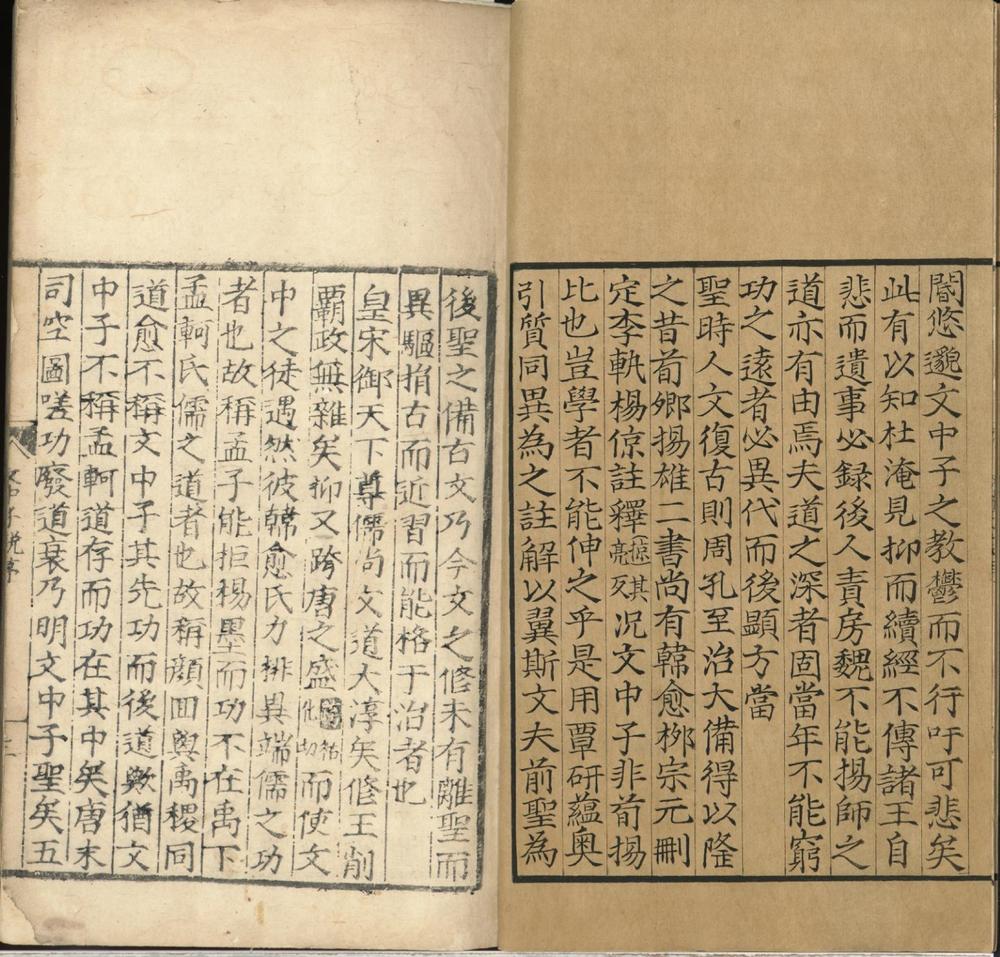 闇悠邈文中子之教欝而不行吁可悲矣
此有以知杜淹見抑而續經不傳諸王自
悲而遺事必録後人責房魏不能揚師之
道亦有由焉夫道之深者固當年不能窮
功之遠者必異代而後顯方當
聖時人文復古則周孔至治大備得以隆
之昔荀郷揚雄二書尚有韓愈栁宗元刪
定李軌楊倞註釋其亮反况文中子非荀揚
比也豈學者不能伸之乎是用覃研蘊奥
引質同異為之註解以翼斯文夫前聖為
後聖之備古文乃今文之修未有離聖而
異驅捐古而近習而能格于治者也
皇宋御天下尊儒尚文道大淳矣修王削
覇政無雜矣抑又跨唐之盛而使文
中之徒遇然彼韓愈氏力排異端儒之功
者也故稱孟子能拒楊墨而功不在禹下
孟軻氏儒之道者也故稱顔回與禹稷同
道愈不稱文中子其先功而後道歟猶文
中子不稱孟軻道存而功在其中矣唐末
司空圖嗟功廢道衰乃明文中子聖矣五